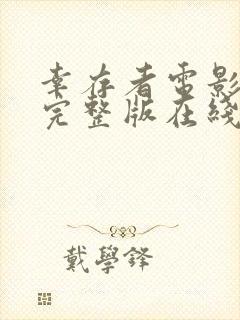 幸存者電影
完整版在綫
戴學鋒